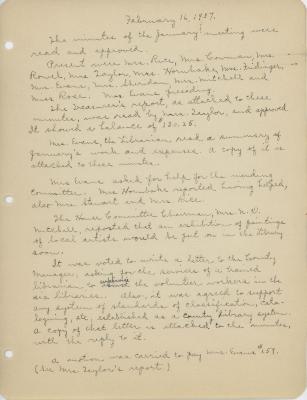 February 16, 1937.
The minutes of the January meeting were
read and approved.
Present were Mrs. Rice, Mrs. Cowman, Mrs.
Rowell, Mrs. Taylor, Mrs. Hornbake, Mrs.
Mrs. Evans, Mrs. Sheridan, Mrs. Mitchell and
Miss Roche. Mrs. Evans presiding.
The Treasurer's report, as attached to these
minutes, was read by Mrs. Taylor, and approved.
It showed a balance of 120.25.
Mrs. Evans, the Librarian, read a summary of
January's work and expense. A copy of it is
attached to these minutes.
Mrs. Evans asked for help for the mending
Committee. Mrs. Hornbake reported having helped,
also Mrs. Stuart and Mrs. Rice.
The House Committee Chairman, Mrs. N. D.
Mitchell, reported that an exhibition of paintings
of local artists would be put on in the library
soon.
It was voted to write a letter to the County
Manager, asking for the services of a trained
librarian to supervise the volunteer workers in the
six libraries. Also, it was agreed to support
any system of standards of classification, cata-
loguing, etc. established as a county library system.
A copy of that letter is attached to the minutes,
with the reply to it.
A motion was carried to pay Mrs. Evans $1.59.
(See Mrs. Taylor's report.)